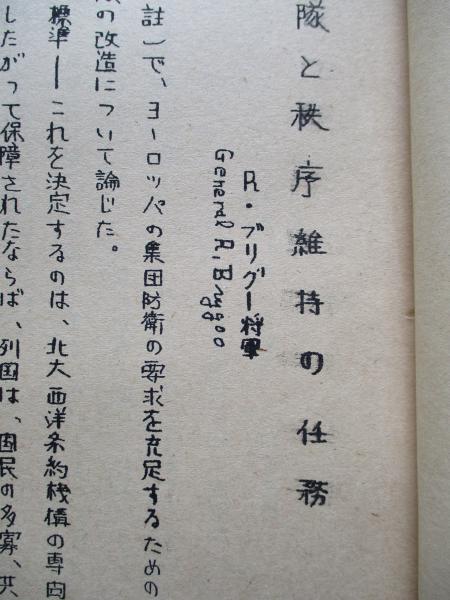 隊と秩序維持の任務
R・ブリグー将軍
General R. Brygoo
註)で、ヨーロッパの集団防衛の要求を充足するための
の改造について論じた。
標準ーこれを決定するのは、北大西洋条約機構の専門
したがって保障されたならば、列国は、国民の多寡、共